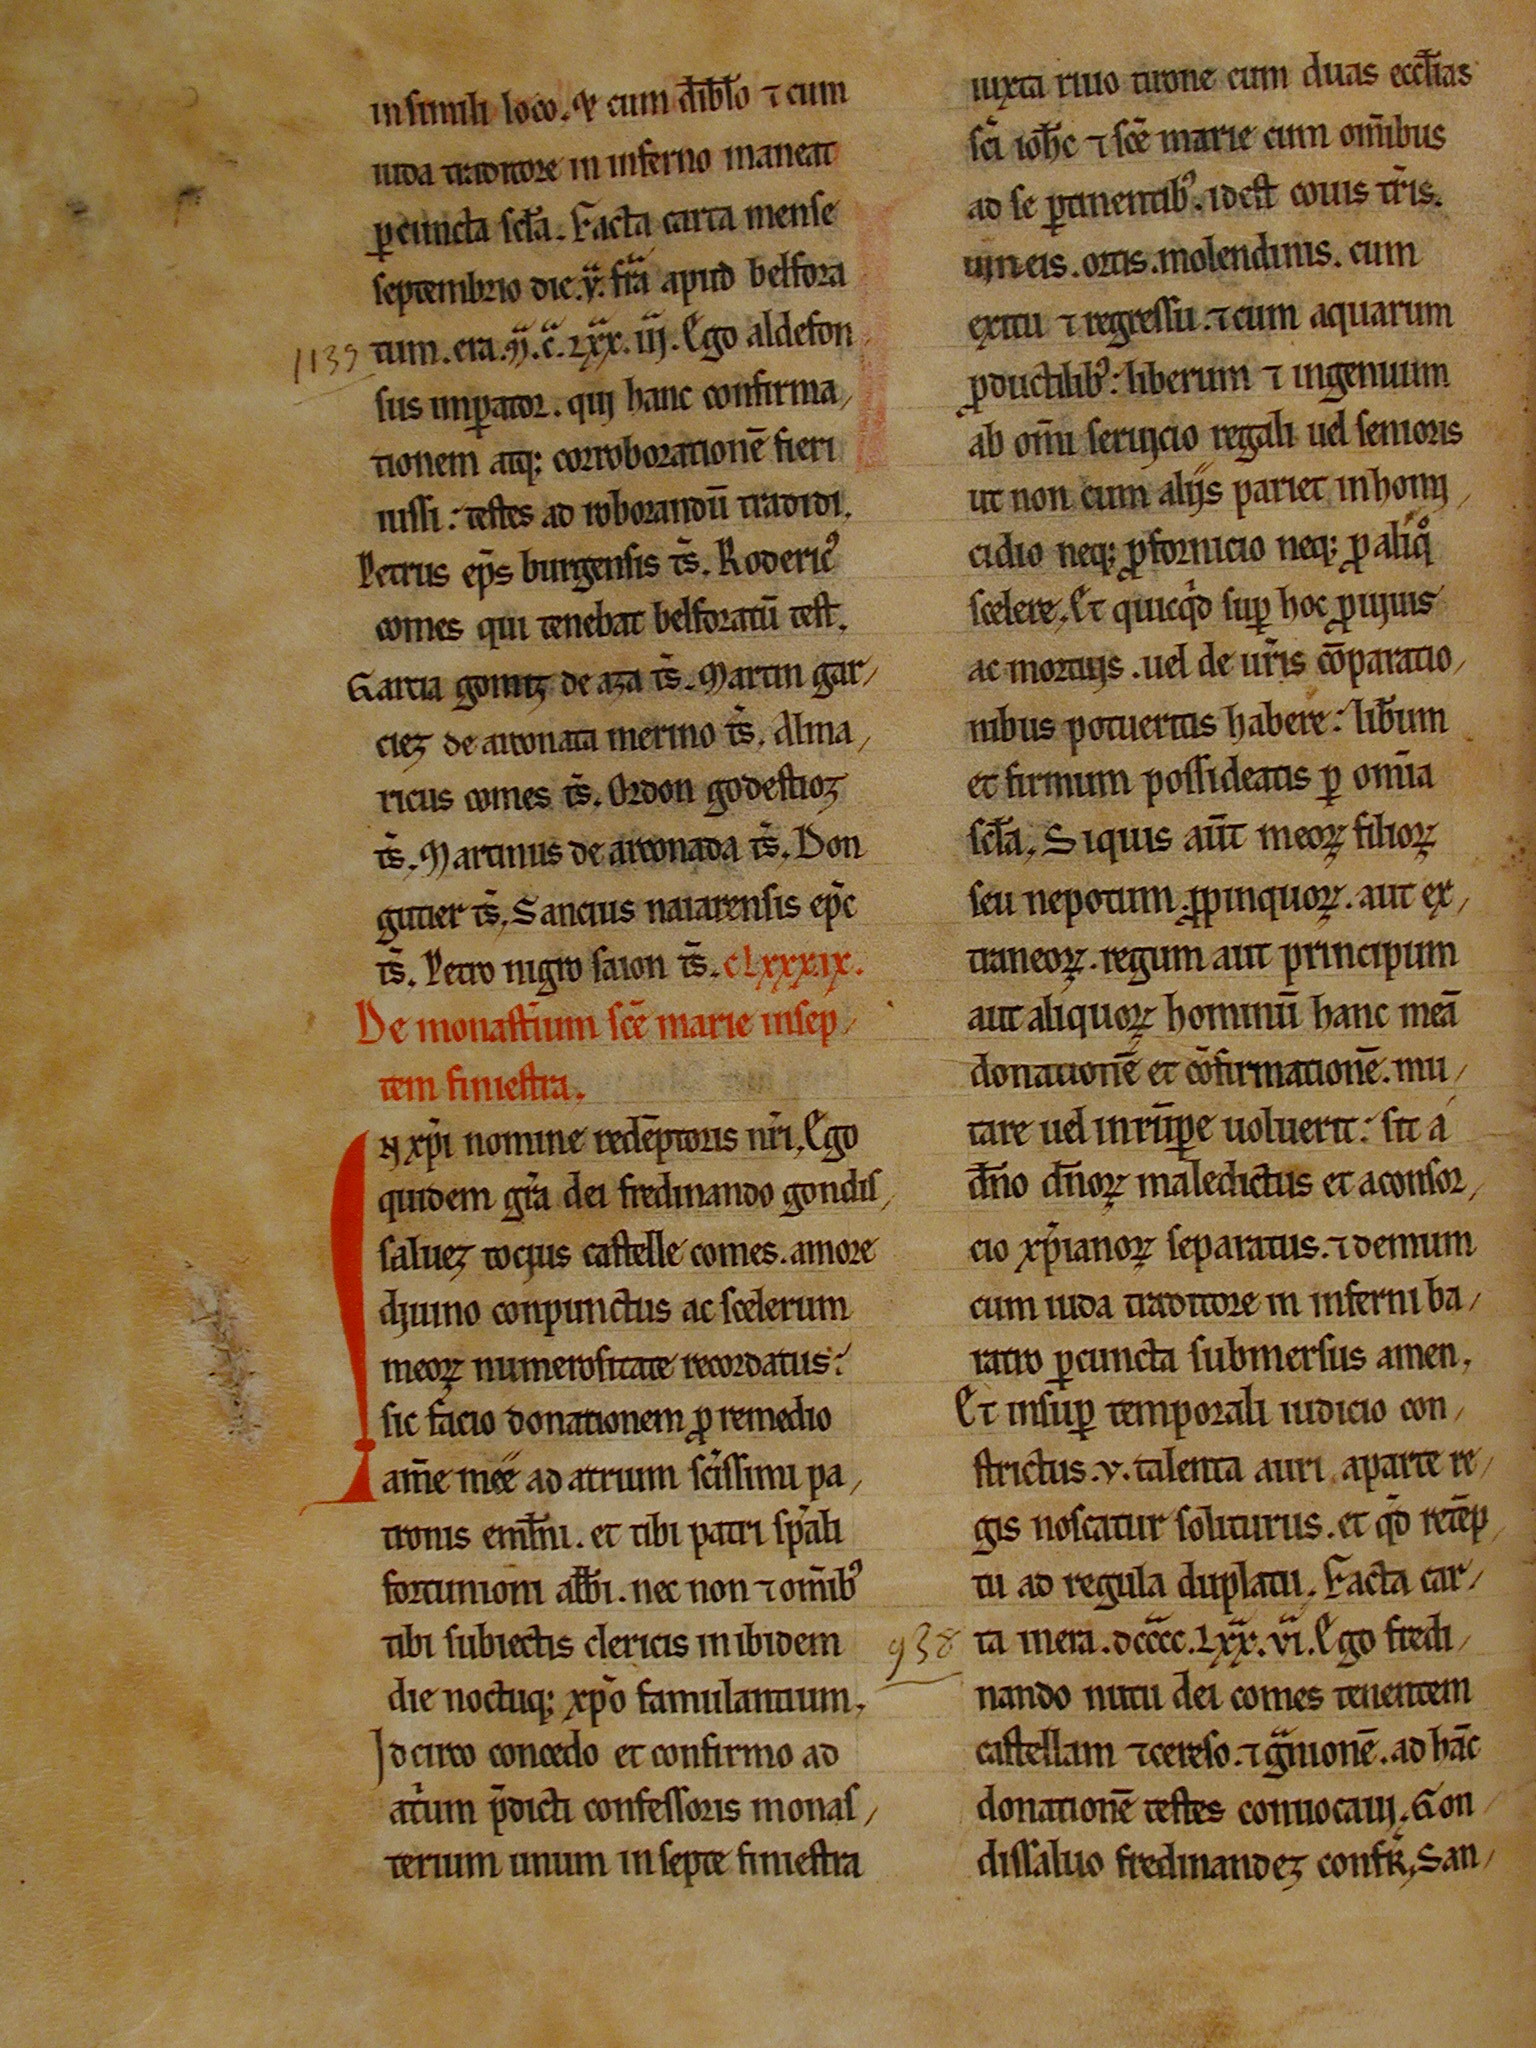 in simili loco. ⁊ cum diab̄lo ⁊ cum
iuda traditore in inferno maneat
ꝑ cuncta sc̄la. Facta carta mense
septembrio die .v. fr̄a apud belfora
1139 tum. era .ꝳ.c̄.Lxx.iij. Ego aldefon
sus imꝑator. qui hanc confirma,
tionem atq; corroborationē fieri
iussi: testes ad roborandū tradidi.
Petrus ep̄s burgensis ts̄. Roderic᾽
comes qui tenebat belforatū test.
Garcia gomiz de aza ts̄. Martin gar,
ciez de arconata merino ts̄. Alma,
ricus comes ts̄. Ordon godestioz
ts̄. Martinus de arconada ts̄. Don
gutier ts̄. Sancius naiarensis ep̄c
ts̄. Petro nigro saion ts̄. CLxxxix.
De monast̄ium sc̄e marie in sep,
tem finiestra.
IN xp̄i nomine redēptoris nr̄i. Ego
quidem gr̄a dei fredinando gondis,
saluez tocius castelle comes. amore
diuino conpunctus ac scelerum
meoꝝ numerositate recordatus:
sic facio donationem ꝓ remedio
am̄e meę ad atrium sc̄issimi pa,
tronis em̄lni. et tibi patri sp̄ali
fortunioni ab̄bi. nec non ⁊ om̄ib᾽
tibi subiectis clericis in ibidem
die noctuq; xp̄o famulantium.
Idcirco concedo et confirmo ad
at̄um p̄dicti confessoris monas,
terium unum in septe finiestra
iuxta riuo tirone cum duas eccl̄ias
sc̄i ioh̄c ⁊ sc̄e marie cum om̄ibus
ad se ꝑtinentib᾽. id est couis tr̄is.
uineis. ortis. molendinis. cum
exitu ⁊ regressu. ⁊ cum aquarum
ꝓductilib᾽: liberum ⁊ ingenuum
ab om̄i seruicio regali uel senioris
ut non cum alijs pariet in homi,
cidio neq; ꝓ fornicio neq; ꝓ aliqͦ
scelere. Et quicq̄d suꝑ hoc ꝓ uiuis
ac mortuis. uel de ur̄is cōparatio,
nibus potueritis habere: lib̄um
et firmum possideatis ꝑ om̄ia
sc̄la. Siquis aūt meoꝝ filioꝝ
seu nepotum ꝓpinquoꝝ. aut ex,
traneoꝝ. regum aut principum
aut aliquoꝝ hominū hanc meā
donationē et cōfirmationē. mu,
tare uel inrūꝑe uoluerit: sit á
dn̄o dn̄oꝝ maledictus et a consor,
cio xp̄ianoꝝ separatus. ⁊ demum
cum iuda traditore in inferni ba,
ratro ꝑ cuncta submersus amen.
Et insuꝑ temporali iudicio con,
strictus .v. talenta auri a parte re,
gis noscatur soliturus. et q̄d retēp,
tu ad regula duplatu. Facta car,
938 ta in era .dcccc.Lxx.vi. Ego fredi,
nando nutu dei comes tenentem
castellam ⁊ cereso. ⁊ gͣnionē. ad hāc
donationē testes conuocaui. Gon
dissaluo fredinandez confr̄. San,